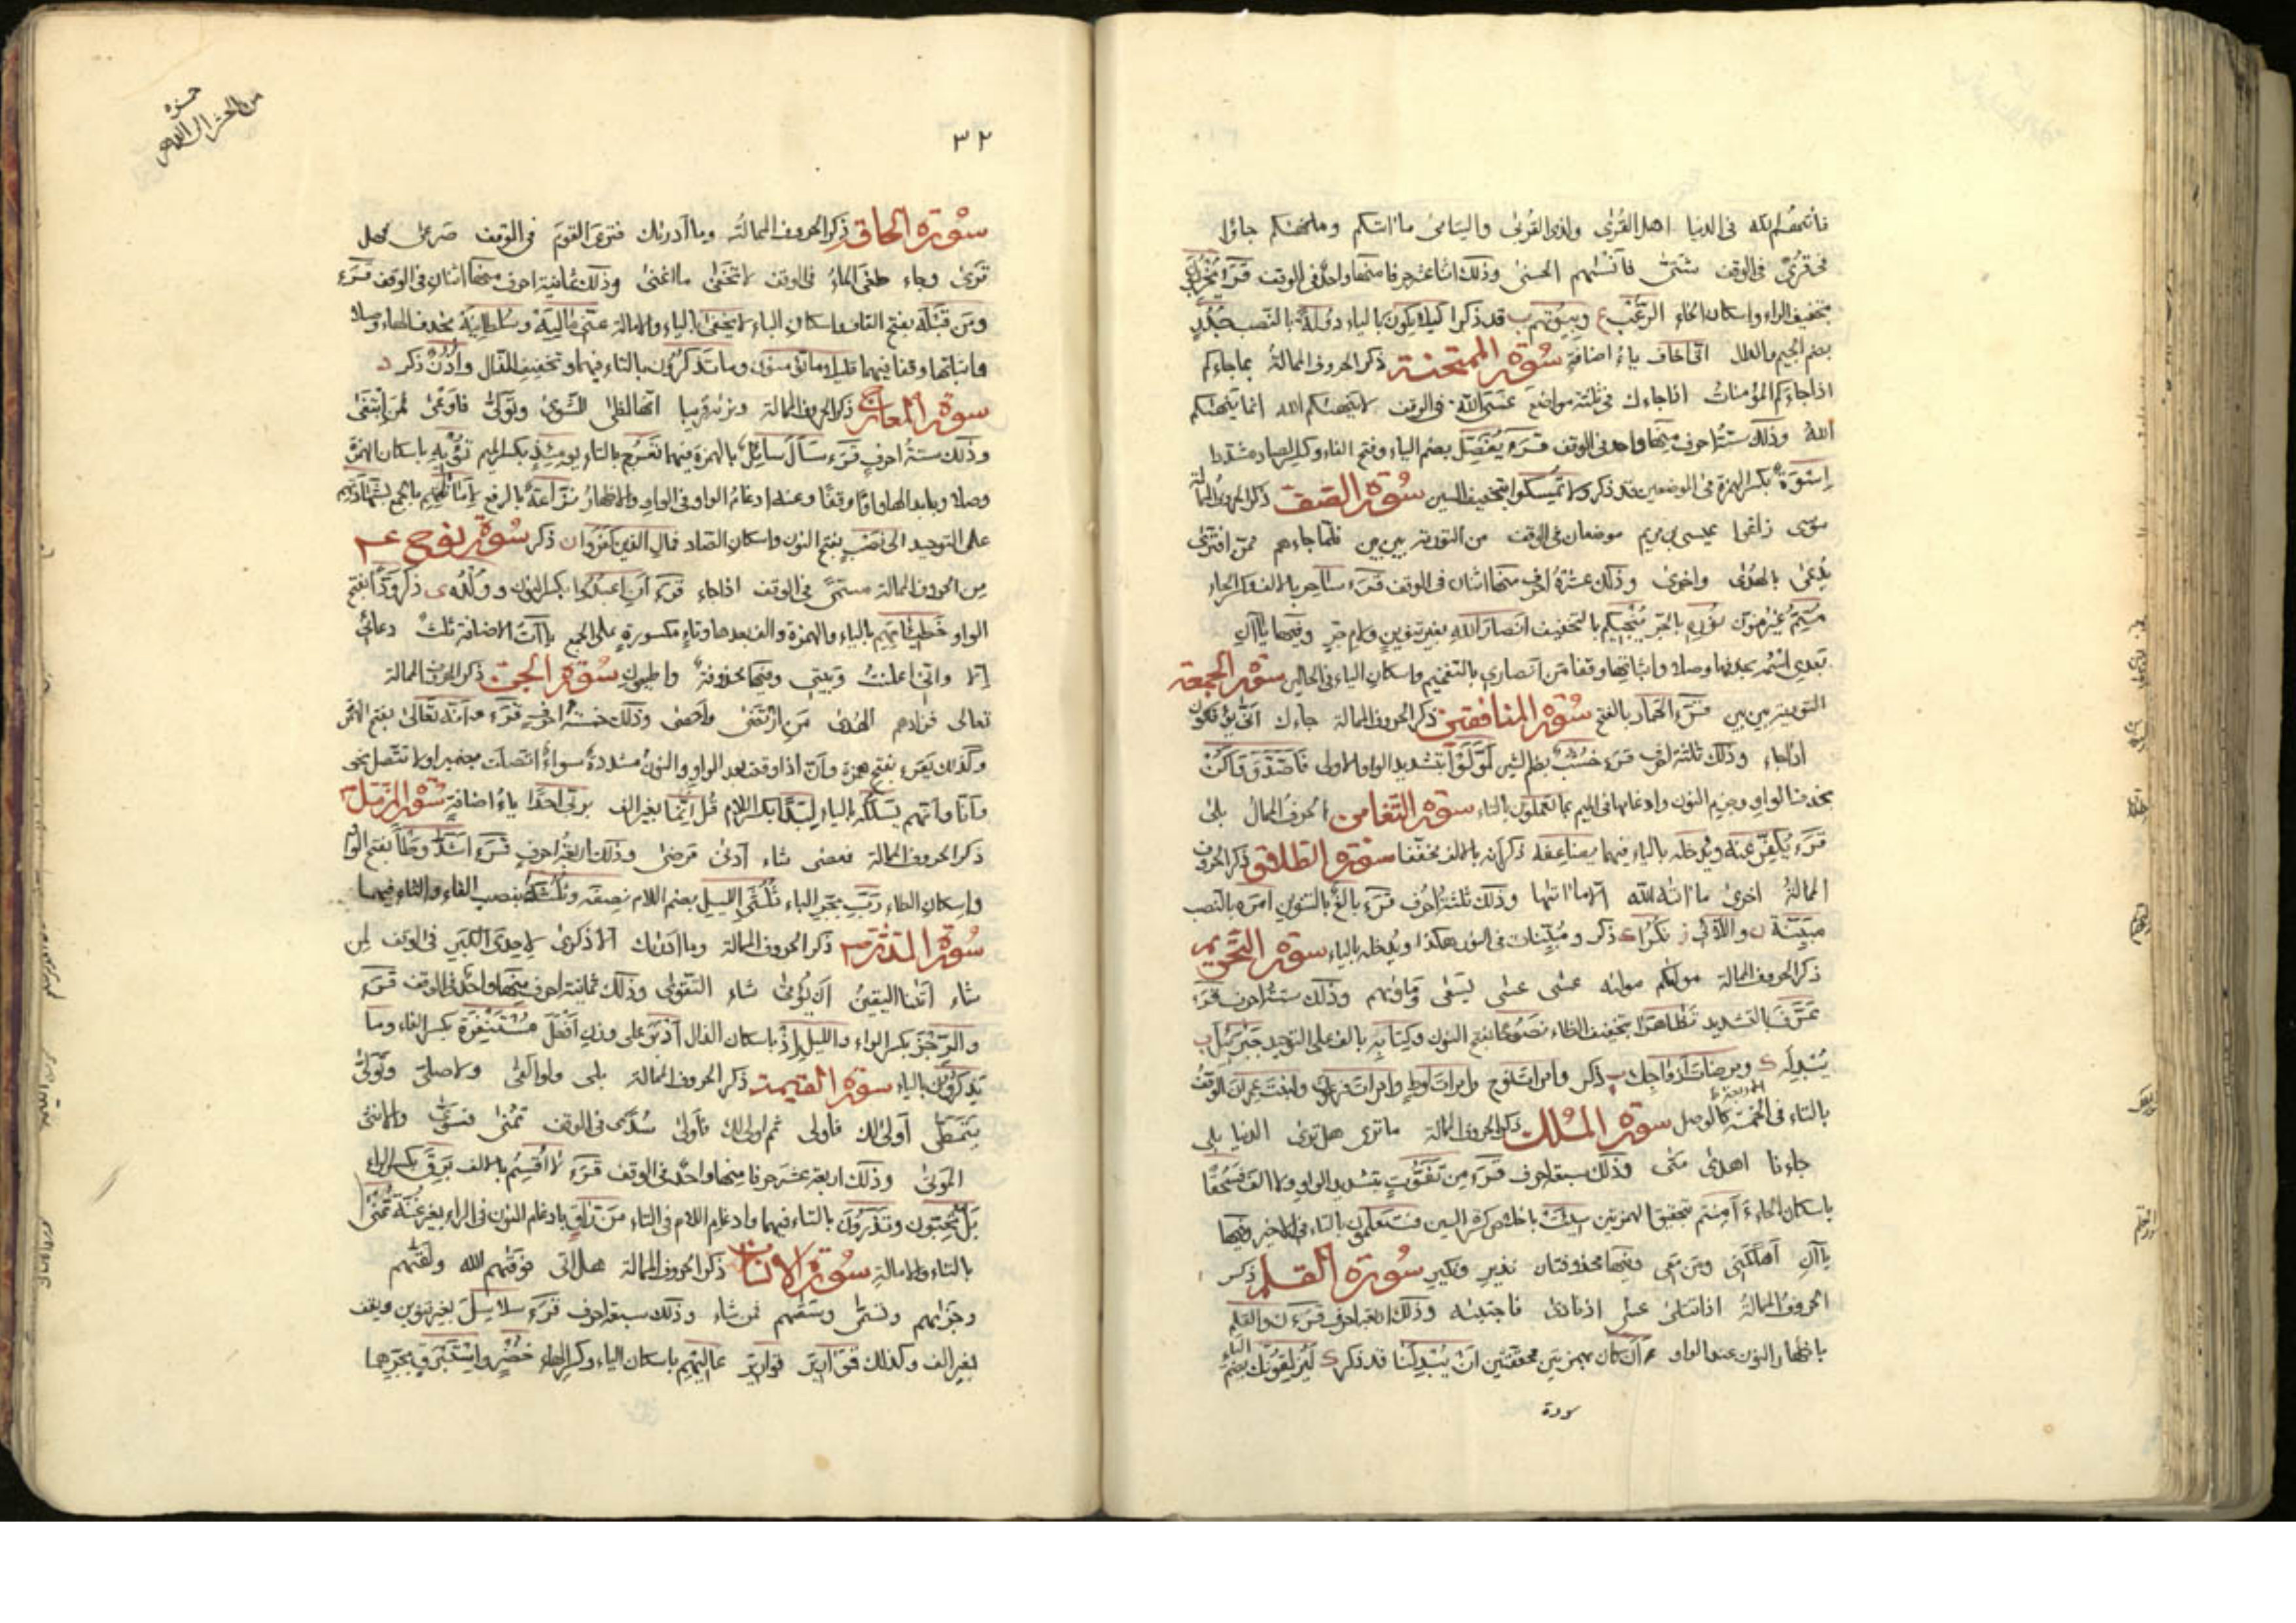 فأنسهم الله في الدنيا اهل القرى ولذى القربى واليتامى ما اتيكم وما نهيكم جاؤا
في قرى في الوقف شتى فأنسيهم الحسنى وذلك اثنا عشر حرفا منها واحد في الوقف قرء يخربون
بتخفيف الراء واسكان الخاء الرعب ع وبيوتهم ب قد ذكرا كيلا يكون بالياء دولة بالنصب جدر
بضم الجيم والدال انى اخاف ياء اضافة سورة الممتحنة ذكر الحروف الممالة بما جاءكم
اذا جاءكم المؤمنات اذا جاءك في ثلثة مواضع عسى الله في الوقف لا ينهيكم الله انما ينهيكم
الله وذلك ستة احرف منها واحد في الوقف قرء يفصل بضم الياء وفتح الفاء وكسر الصاد مشددا
اسوة بكسر الهمزة في الموضعين قد ذكر ولا تمسكوا بتخفيف السين سورة الصف ذكر الحروف الممالة
موسى زاغوا عيسى بن مريم موضعان في الوقف من التورية بين بين فلما جاءهم ممن افترى
يدعى بالهدى واخرى وذلك عشرة احرف منها اثنان في الوقف قرء ساحر بالالف وكسر الحاء
متم غير منون نوره بالجر ننجيكم بالتخفيف انصار الله بغير تنوين ولام جر وفيها ياآن
بعدى اسمه بحذفها وصلا واثباتها وقفا من انصارى بالتفخيم واسكان الياء في الحالين سورة الجمعة
التورية بين بين قرء الحمار بالفتح سورة المنافقين ذكر الحروف الممالة جاءك انى يؤفكون
اذا جاء وذلك ثلثة احرف قرء خشب بضم الشين لووا بتشديد الواو الاولى فاصدق واكن
بحذف الواو وجزم النون وادغامها في الميم بما تعملون بالتاء سورة التغابن الحروف الممال بلى
قرء يكفر عنه ويدخله بالياء فيهما يضاعفه ذكر انه بالالف مخففا سورة الطلاق ذكر الحروف
الممالة اخرى ما اتيه الله الا ما اتيها وذلك ثلثة احرف قرء بالغ بالتنوين امره بالنصب
مبينة ن واللائي ز نكرا ع ذكر ومبينات في النور هكذا ويدخله بالياء سورة التحريم
ذكر الحروف الممالة موليكم موليه عسى عسى يسعى ومأويهم وذلك ستة احرف قرء
عرف بالتشديد تظاهرا بتخفيف الظاء نصوحا بفتح النون وكتابه بالف على التوحيد جبرئيل ب
يبدله ك ومرضات ازواجك ب ذكر وامرات نوح وامرات لوط وامرات فرعون وابنت عمران الوقف
بالتاء في الخمسة كالوصل سورة الملك ذكر الحروف الممالة ما ترى هل ترى الدنيا بلى
جاءنا اهدى متى وذلك سبعة احرف قرء من تفوت بتشديد الواو ولا الف فسحقا
باسكان الحاء ءأمنتم بتحقيق الهمزتين سيئت باخلاص كسرة السين فستعلمون بالتاء في الاخير وفيها
ياآن اهلكنى ومن معى وفيها محذوفتان نذير ونكير سورة القلم ذكر
الحروف الممالة اذا تتلى عسى اذ نادى فاجتبيه وذلك اربعة احرف قرء ن والقلم
باظهار النون عند الواو ءأن كان بهمزتين محققتين ان يبدلنا قد ذكر ك ليزلقونك بضم الياء
سورة
حمزه
من الحشر الى الدهر
٣٢
سورة الحاقة ذكر الحروف الممالة وما ادريك فترى القوم في الوقف صرعى فهل
ترى وجاء طغى الماء في الوقف لا تخفى ما اغنى وذلك ثمانية احرف منها اثنان في الوقف قرء
ومن قبله بفتح القاف واسكان الباء لا يخفى بالياء والامالة عنى ماليه وسلطانيه بحذف الهاء وصلا
واثباتها وقفا فيهما قليلا ما تؤمنون وما تذكرون بالتاء فيهما وتخفيف الذال واذن ذكر د
سورة المعارج ذكر الحروف الممالة ونريه قريبا انها لظى للشوى وتولى فاوعى فمن ابتغى
وذلك ستة احرف قرء سأل سائل بالهمزة فيهما تعرج بالتاء يومئذ بكسر الميم تؤيه باسكان الهمزة
وصلا وبابدالها واوا وقفا وعنه ادغام الواو في الواو والاظهار نزاعة بالرفع لاماناتهم بالجمع بشهادتهم
على التوحيد الى نصب بفتح النون واسكان الصاد فمال الذين كفروا ن ذكر سورة نوح عم
من الحروف الممالة مسمى في الوقف اذا جاء قرء ان اعبدوا بكسر النون وولده ى ذكر ودا بفتح
الواو خطيئاتهم بالياء والهمزة والف بعدها وتاء مكسورة على الجمع ياآت الاضافة ثلث دعائى
الا وانى اعلنت وبيتى وفيها محذوفة واطيعون سورة الجن ذكر الحروف الممالة
تعالى فزادهم الهدى من ارتضى واحصى وذلك خمسة احرف قرء وانه تعالى بفتح الهمزة
وكذلك يقرء بفتح همزة وان اذا وقعت بعد الواو والنون مشددة سواء اتصلت بضمير او لا تتصل نحو
وانا وانهم يسلكه بالياء لبدا بكسر اللام قل انما بغير الف بربى احدا ياء اضافة سورة المزمل
ذكر الحروف الممالة فعصى شاء ادنى مرضى وذلك اربعة احرف قرء اشد وطأ بفتح الواو
واسكان الطاء رب بجر الباء ثلثى الليل بضم اللام نصفه وثلثه بنصب الفاء والثاء فيهما
سورة المدثر ذكر الحروف الممالة وما ادريك الا ذكرى لاحدى الكبر في الوقف لمن
شاء اتينا اليقين ان يؤتى شاء التقوى وذلك ثمانية احرف منها واحد في الوقف قرء
والرجز بكسر الراء والليل اذ باسكان الذال ادبر على وزن افعل مستنفرة بكسر الفاء وما
يذكرون بالياء سورة القيمة ذكر الحروف الممالة بلى ولو القى ولا صلى وتولى
يتمطى اولى لك فاولى ثم اولى لك فاولى سدى في الوقف تمنى فسوى والانثى
الموتى وذلك اربعة عشر حرفا منها واحد في الوقف قرء لا اقسم بالالف برق بكسر الراء
بل تحبون وتذرون بالتاء فيهما وادغام اللام في التاء من راق بادغام النون في الراء بغير غنة تمنى
بالتاء والامالة سورة الانسان ذكر الحروف الممالة هل اتى فوقيهم الله ولقيهم
وجزيهم وتسمى وسقيهم فمن شاء وذلك سبعة احرف قرء سلاسل بغير تنوين ويقف
بغير الف وكذلك قوارير قوارير عاليهم باسكان الياء وكسر الهاء خضر واستبرق بجرهما